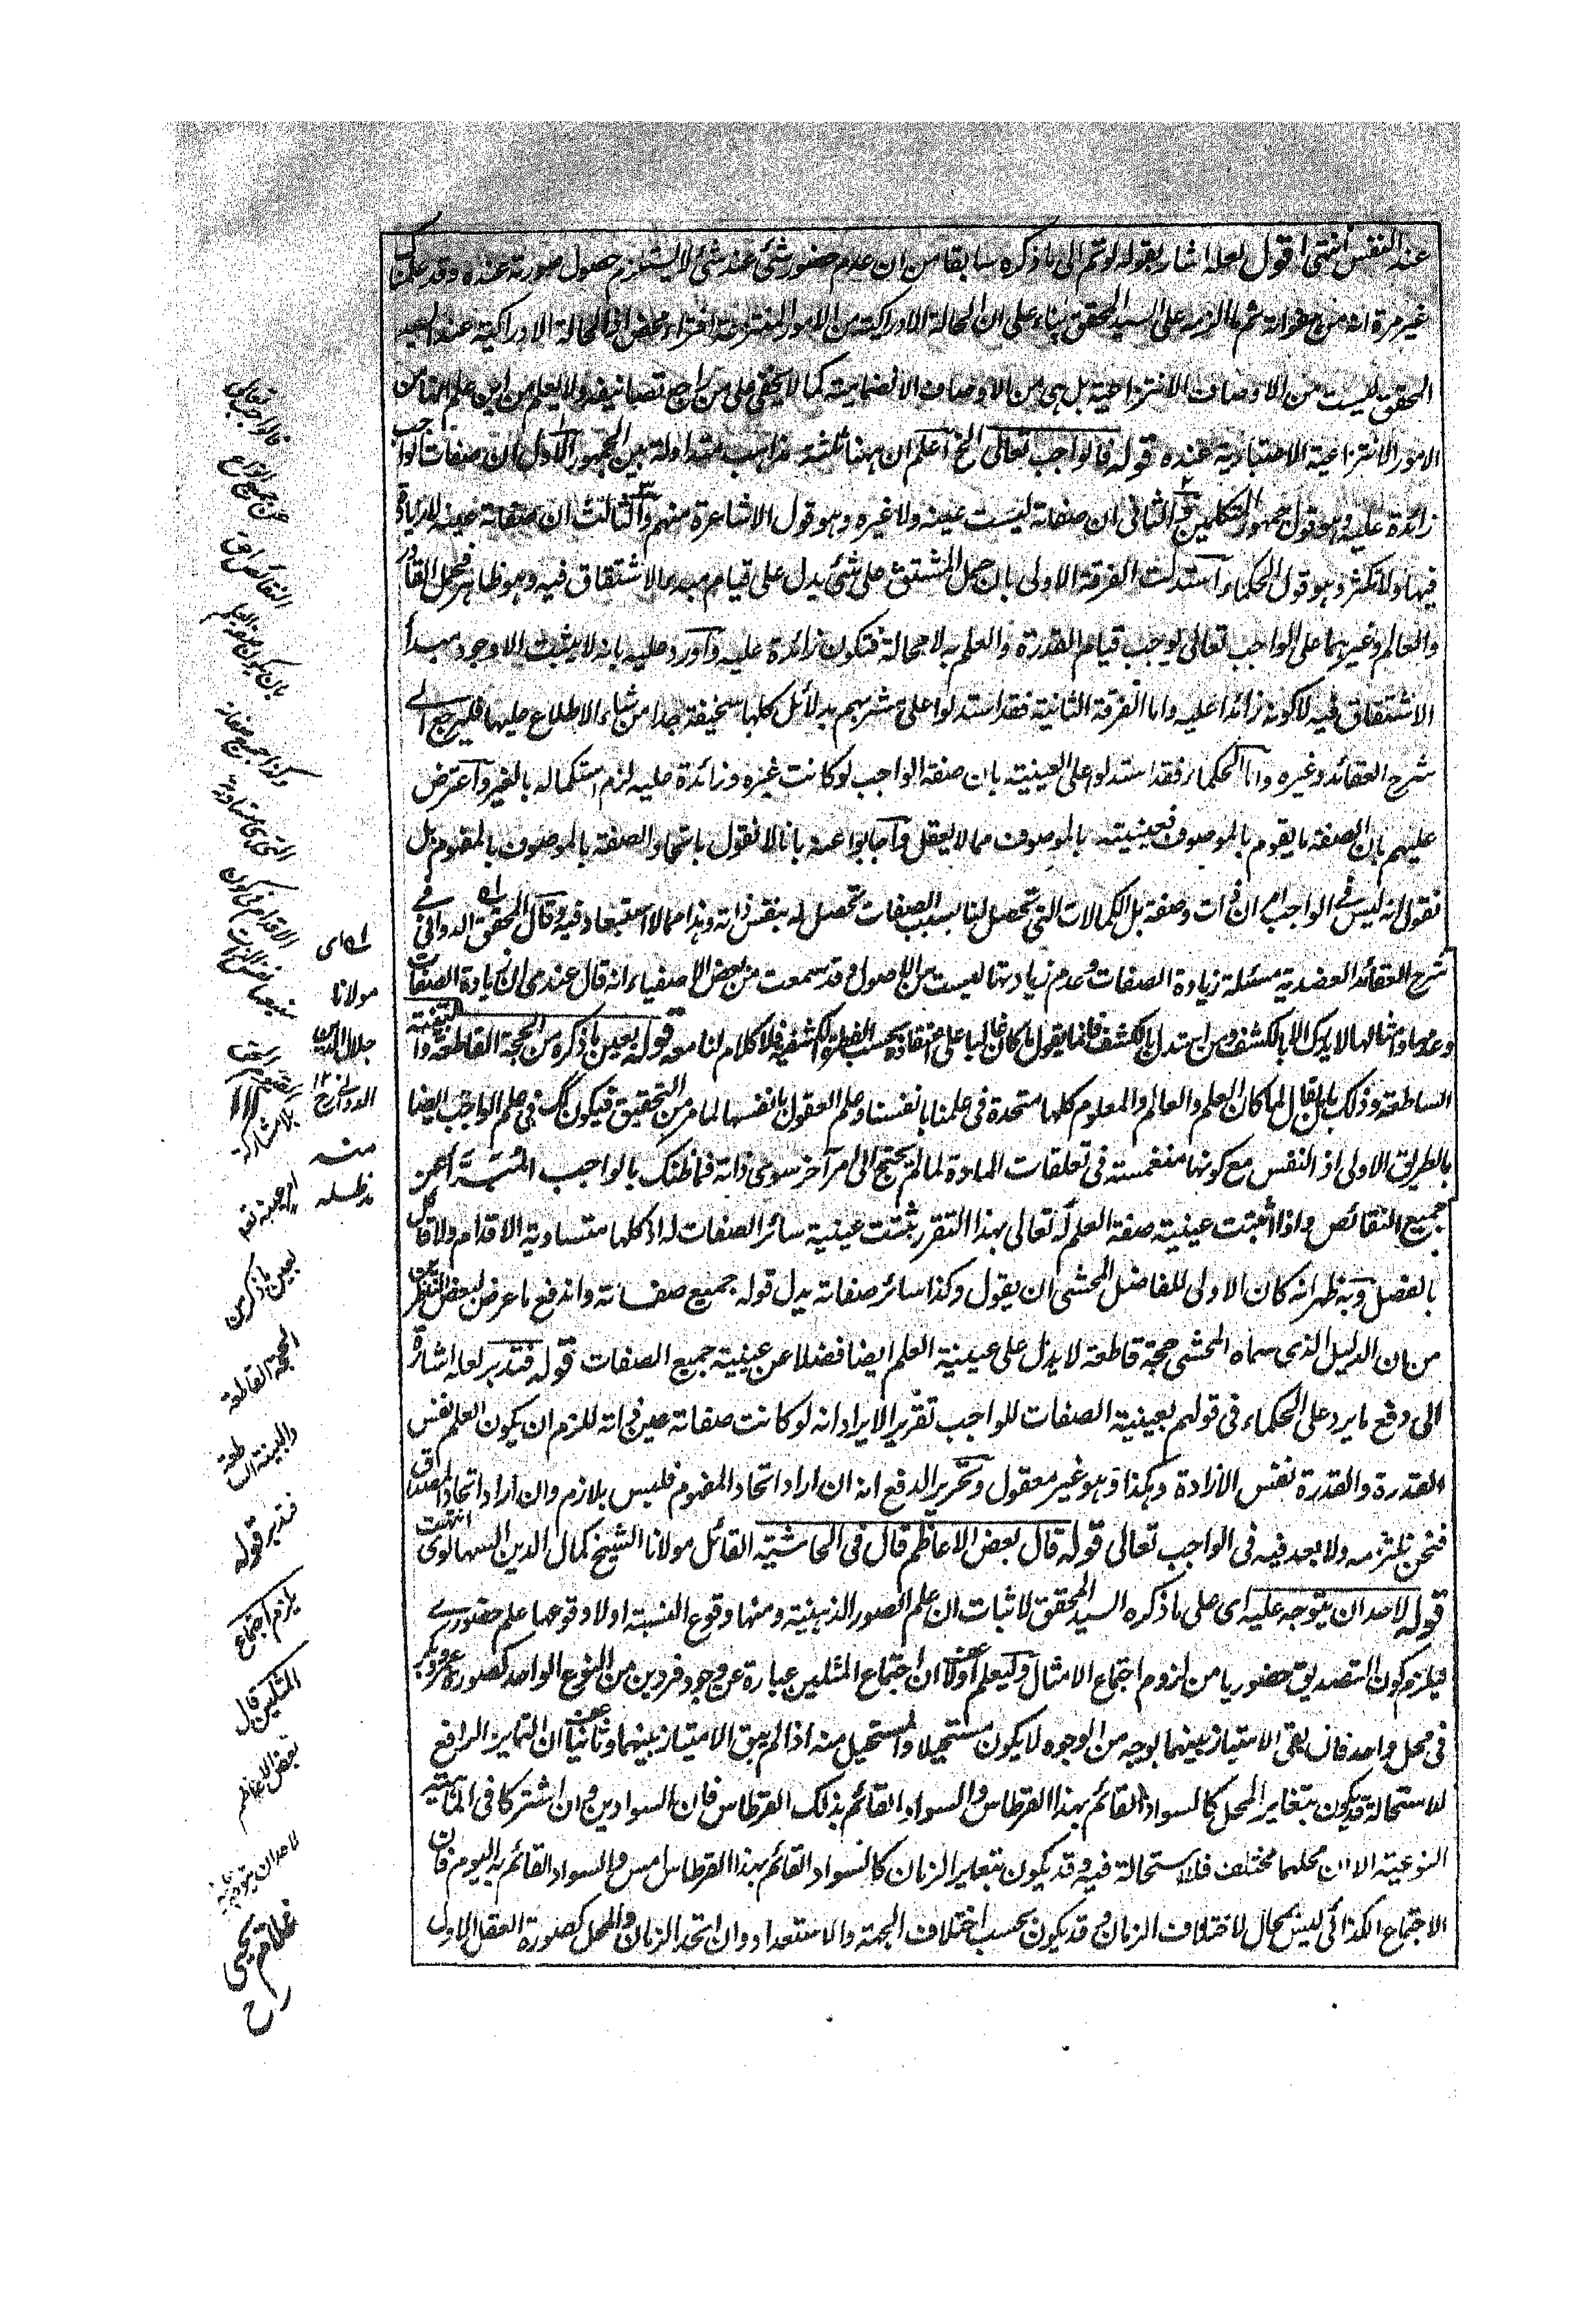 عند النفس انتهى اقول لعله اشار بقوله لو تم الى ما ذكره سابقا من ان عدم حضور شئ عند شئ لا يستلزم حصول صورته عنده وقد علمناك
غير مرة انه من مطوراته ثم ما الزمه على السيد المحقق بناء على ان الحالة الادراكية من الامور المنتزعة افتراء محض اذ الحالة الادراكية عند السيد
المحقق ليست من الاوصاف الانتزاعية بل هى من الاوصاف الانضمامية كما لا يخفى على من راجع تصانيفه ولا يعلم من اين علم انها من
الامور الانتزاعية الاعتبارية عنده قوله فالواجب تعالى الخ اعلم ان ههنا ثلثة مذاهب متداولة بين الجمهور الاول ان صفات الواجب
زائدة عليه وهو قول جمهور المتكلمين والثانى ان صفاته ليست عينه ولا غيره وهو قول الاشاعرة منهم والثالث ان صفاته عينه لا زيادة
فيها ولا تكثر وهو قول الحكماء استدلت الفرقة الاولى بان حمل المشتق على شئ يدل على قيام مبدء الاشتقاق فيه وهو ظاهر فحمل القادر
والعالم وغيرهما على الواجب تعالى يوجب قيام القدرة والعلم به لا محالة فتكون زائدة عليه واورد عليه بانه لا يثبت الا وجود مبدأ
الاشتقاق فيه لا كونه زائدا عليه واما الفرقة الثانية فقد استدلوا على مشربهم بدلائل كلها سخيفة جدا من شاء الاطلاع عليها فليرجع الى
شرح العقائد وغيره واما الحكماء فقد استدلوا على العينية بان صفة الواجب لو كانت غيره وزائدة عليه لزم استكماله بالغير واعترض
عليهم بان الصفة ما يقوم بالموصوف فعينيته بالموصوف مما لا يعقل واجابوا عنه بانا لا نقول باتحاد الصفة بالموصوف بالمفهوم بل
نقول انه ليس فى الواجب امران ذات وصفة بل الكمالات التى تحصل لنا بسبب الصفات تحصل له بنفس ذاته وهذا مما لا استبعاد فيه وقال المحقق الدوانى فى
شرح العقائد العضدية مسئلة زيادة الصفات وعدم زيادتها ليست من الاصول وقد سمعت من بعض الاصفياء انه قال عندى ان زيادة الصفات
وعدمها وامثالها لا يدرك الا بالكشف ومن استدل بالكشف فانما يقول ما كان غالبا على اعتقاده بحسب الفطرة الكشفية فلا كلام لنا معه قوله بعين ما ذكره من الحجة القاطعة والبينة
الساطعة وذلك بان يقال لما كان العلم والعالم والمعلوم كلها متحدة فى علمنا بانفسنا وعلم العقول بانفسها لما مر من التحقيق فيكون كك فى علم الواجب ايضا
بالطريق الاولى اذ النفس مع كونها منغمسة فى تعلقات المادة لما لم يحتج الى امر آخر سوى ذاته فما ظنك بالواجب المنزه عن
جميع النقائص واذا اثبتت عينية صفة العلم له تعالى بهذا التقرر ثبتت عينية سائر الصفات له اذ كلها متساوية الاقدام ولا قائل
بالفصل وبه ظهر انه كان الاولى للفاضل المحشى ان يقول وكذا سائر صفاته بدل قوله جميع صفاته واندفع ما عرض لبعض الناظرين
من ان الدليل الذى سماه المحشى حجة قاطعة لا يدل على عينية العلم ايضا فضلا عن عينية جميع الصفات قوله فتدبر لعله اشارة
الى دفع ما يرد على الحكماء فى قولهم بعينية الصفات للواجب تقرير الايراد انه لو كانت صفاته عين ذاته للزم ان يكون العلم نفس
القدرة والقدرة نفس الارادة وهكذا وهو غير معقول وتحرير الدفع انه ان اراد اتحاد المفهوم فليس بلازم وان اراد اتحاد المصداق
فنحن نلتزمه ولا بعد فيه فى الواجب تعالى قوله قال بعض الاعاظم قال فى الحاشية القائل مولانا الشيخ كمال الدين السهالوى انتهت
قوله لاحد ان يتوجه عليه اى على ما ذكره السيد المحقق لاثبات ان علم الصور الذهنية ومنها وقوع النسبة اولا وقوعها علم حضورى
فيلزم كون التصديق حضوريا من لزوم اجتماع الامثال وليعلم اولا ان اجتماع المثلين عبارة عن وجود فردين من النوع الواحد كصورة عمرو وبكر
فى محل واحد فان بقى الامتياز بينهما بوجه من الوجوه لا يكون مستحيلا والمستحيل منه اذا لم يبق الامتياز بينهما وثانيا ان التمايز الرافع
للاستحالة قد يكون بتغاير المحل كالسواد القائم بهذا القرطاس والسواد القائم بذلك القرطاس فان السوادين وان اشتركا فى الماهية
النوعية الا ان محلهما مختلف فلا استحالة فيه وقد يكون بتغاير الزمان كالسواد القائم بهذا القرطاس امس والسواد القائم به اليوم فان
الاجتماع الكذائى ليس بمحال لاختلاف الزمان وقد يكون بحسب اختلاف الجهة والاستعداد وان اتحد الزمان والمحل كصورة العقل الاول
فالواجب تعالى
عن جميع انواع
النقائص احق
بان يكون صفة العلم
وكذا جميع صفاته
التى هى متساوية
الاقدام فى كون
عينها نفس الذات
بلا مشاركة
امر اجنبية نعم
بعين ما ذكر من
الحجة القاطعة
والبينة الساطعة
فتدبر قوله
يلزم اجتماع
المثلين قال
بعض الاعاظم
لاحد ان يتوجه
غلام يحيى
رح
اى
مولانا
جلال الدين
الدوانى ١٢
منه
مد ظله